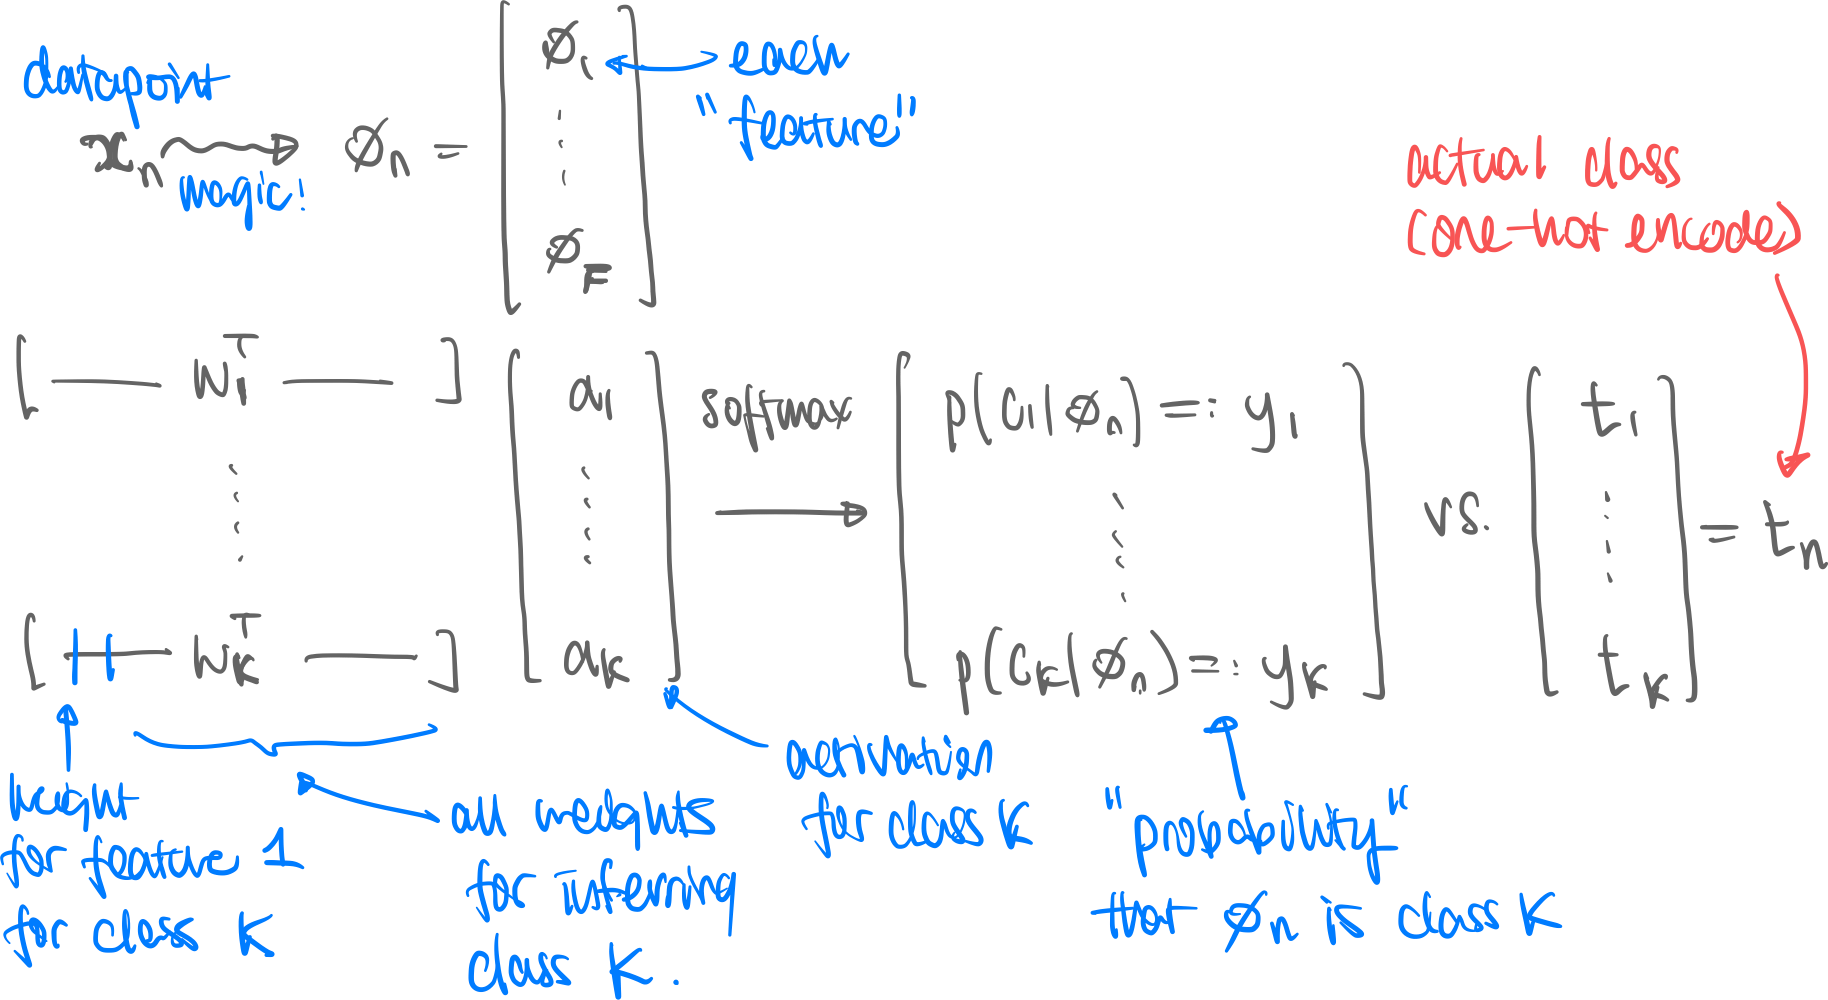 datapoint
x_n → ϕ_n = [ϕ_1 ⋮ ϕ_F]
magic!
each
"feature"
actual class
(one-hot encode)
[— w_1^T —]
⋮
[— w_K^T —]
[a_1 ⋮ a_K]
softmax
[p(C_1|ϕ_n) =: y_1
⋮
p(C_K|ϕ_n) =: y_K]
vs.
[t_1 ⋮ t_K] = t_n
weight
for feature 1
for class K
all weights
for inferring
class K.
activation
for class K
"probability"
that ϕ_n is class K